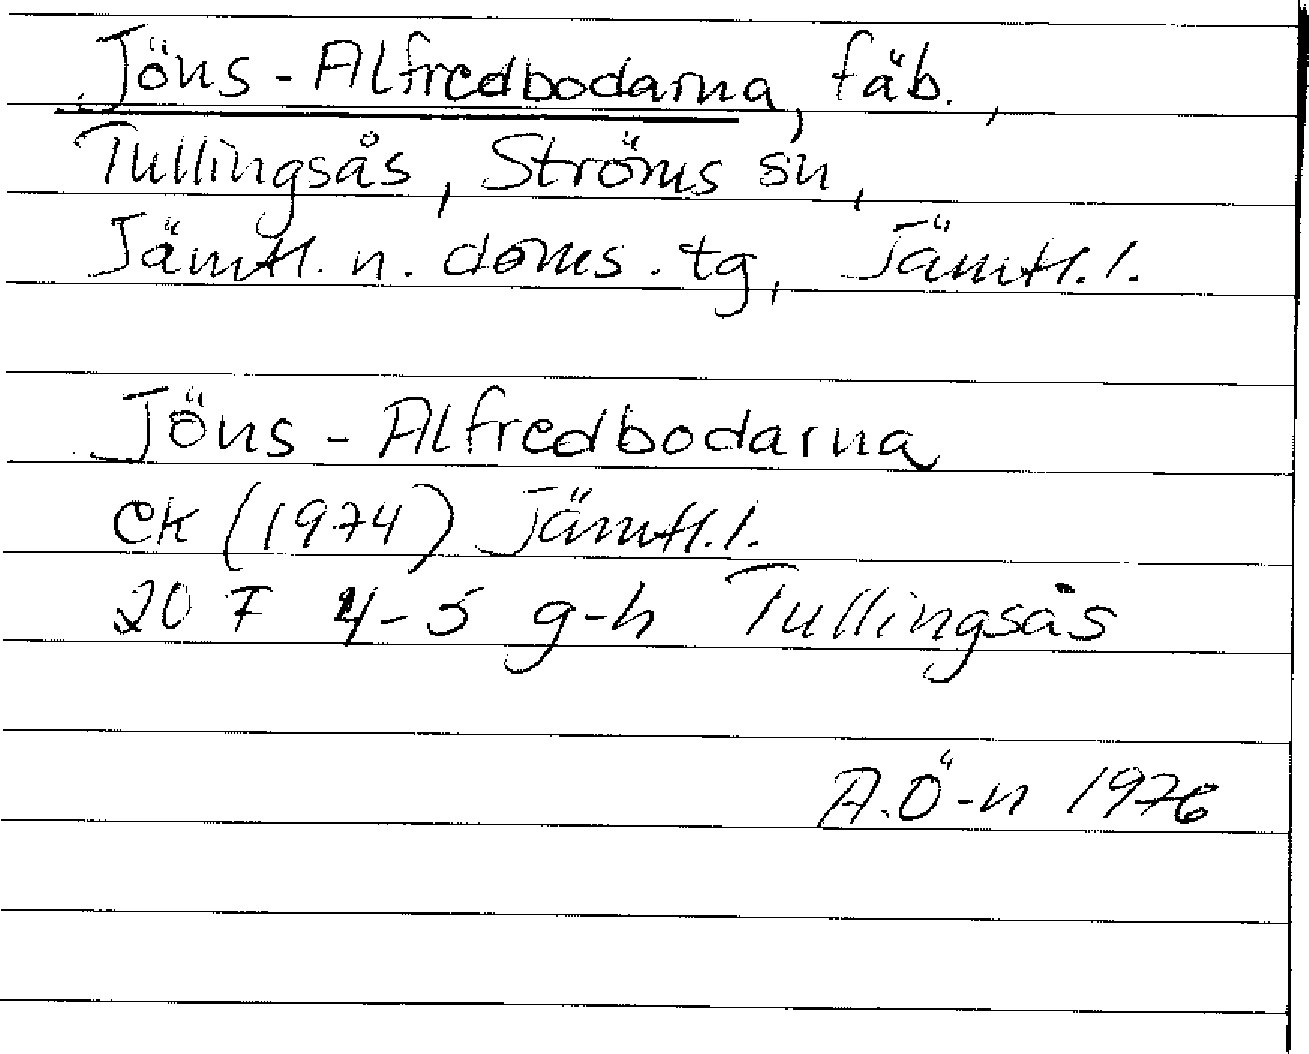 Jöns-Alfredbodarna, fäb.,
Tullingsås, Ströms sn,
Jämtl. n. doms. tg, Jämtl. l.
Jöns-Alfredbodarna
EK (1974) Jämtl. l.
20 F 4-5 g-h Tullingsås
A.Ö-n 1976